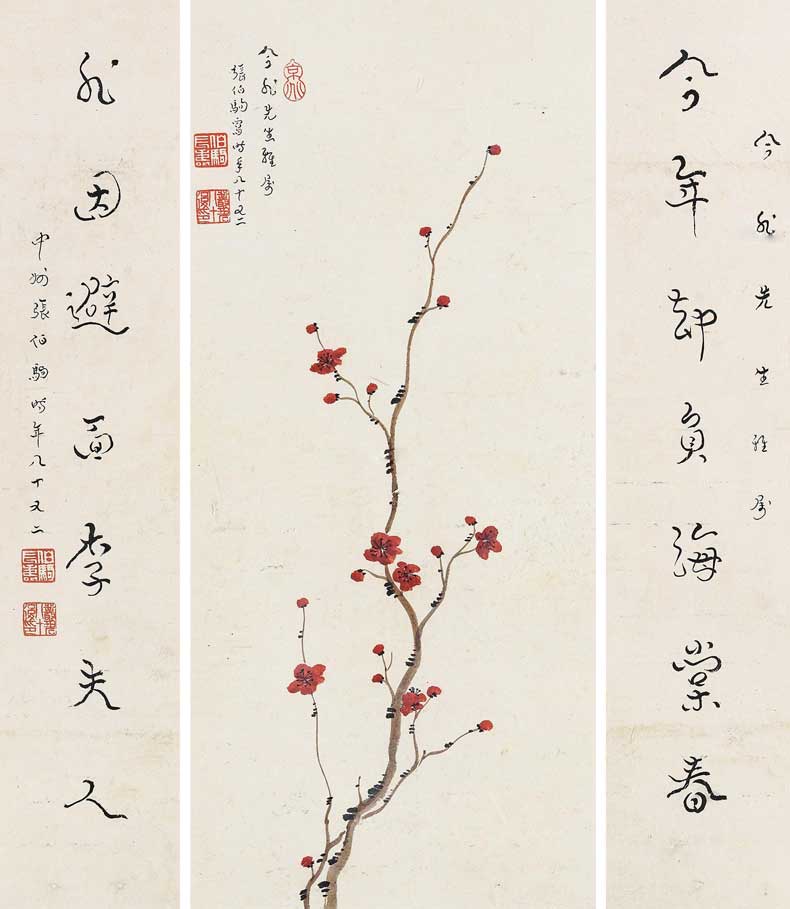 今非先生雅屬
今年却負海棠春
今非先生雅屬
張伯駒寫時年八十又二
非因避面李夫人
中州張伯駒時年八十又二